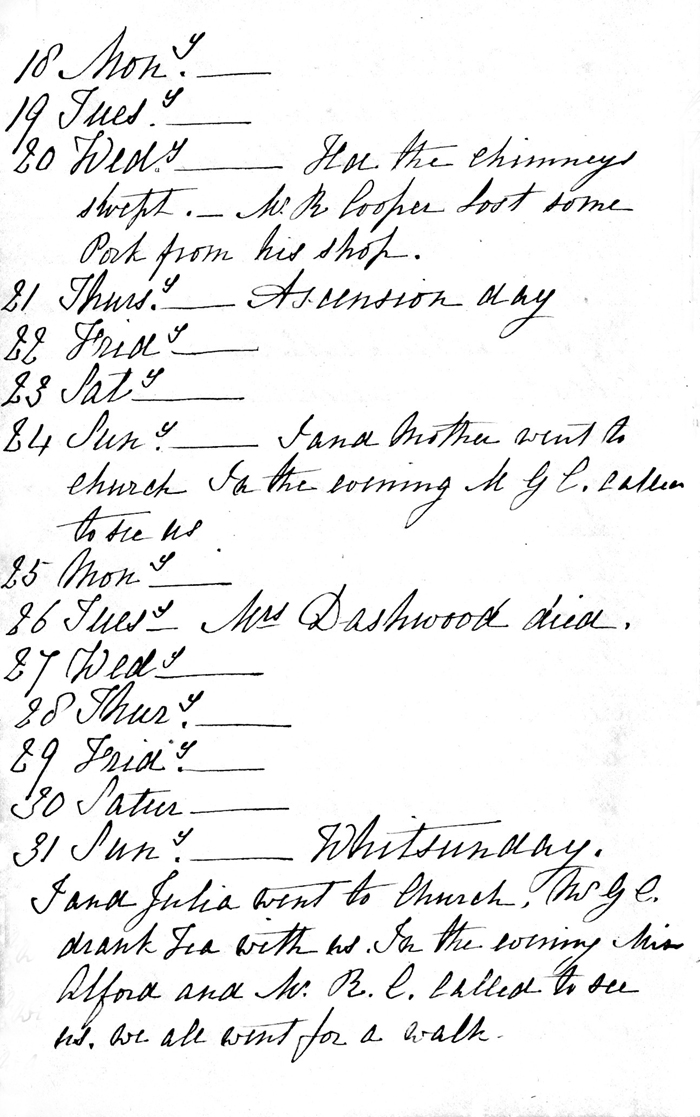 18 Mon.y ——
19 Tues.y ——
20 Wed.y —— Had the chimneys
swept. — Mr. R Cooper Lost some
Pork from his shop.
21 Thurs.y —— Ascension day
22 Fridy ——
23 Saty ——
24 Sun.y —— I and Mother went to
church In the evening M G C. called
to see us
25 Mony ——
26 Tuesy — Mrs Dashwood died.
27 Wedy ——
28 Thur.y ——
29 Frid.y ——
30 Satur ——
31 Sun.y —— Whitsunday.
I and Julia went to Church, Mr G C.
drank Tea with us. In the evening Miss
Alford and Mr. R. C. called to see
us. we all went for a walk.